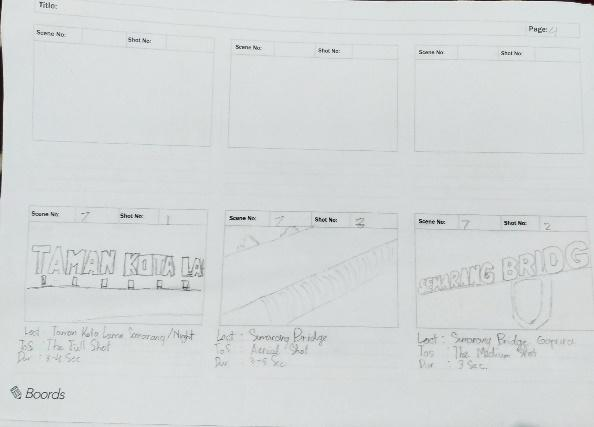 Title:
Page: 4
Scene No: Shot No:
Scene No: Shot No:
Scene No: Shot No:
Scene No: 7 Shot No: 1
TAMAN KOTA LA
Loct : Taman Kota Lama Semarang /Night
ToS : The Full Shot
Dur : 3-4 Sec
Scene No: 7 Shot No: 2
Loct : Semarang Bridge
ToS : Aerial Shot
Dur : 3-5 Sec
Scene No: 7 Shot No: 2
SEMARANG BRIDG
Loct : Semarang Bridge Gapura
ToS : The Medium Shot
Dur : 3 Sec.
Boords